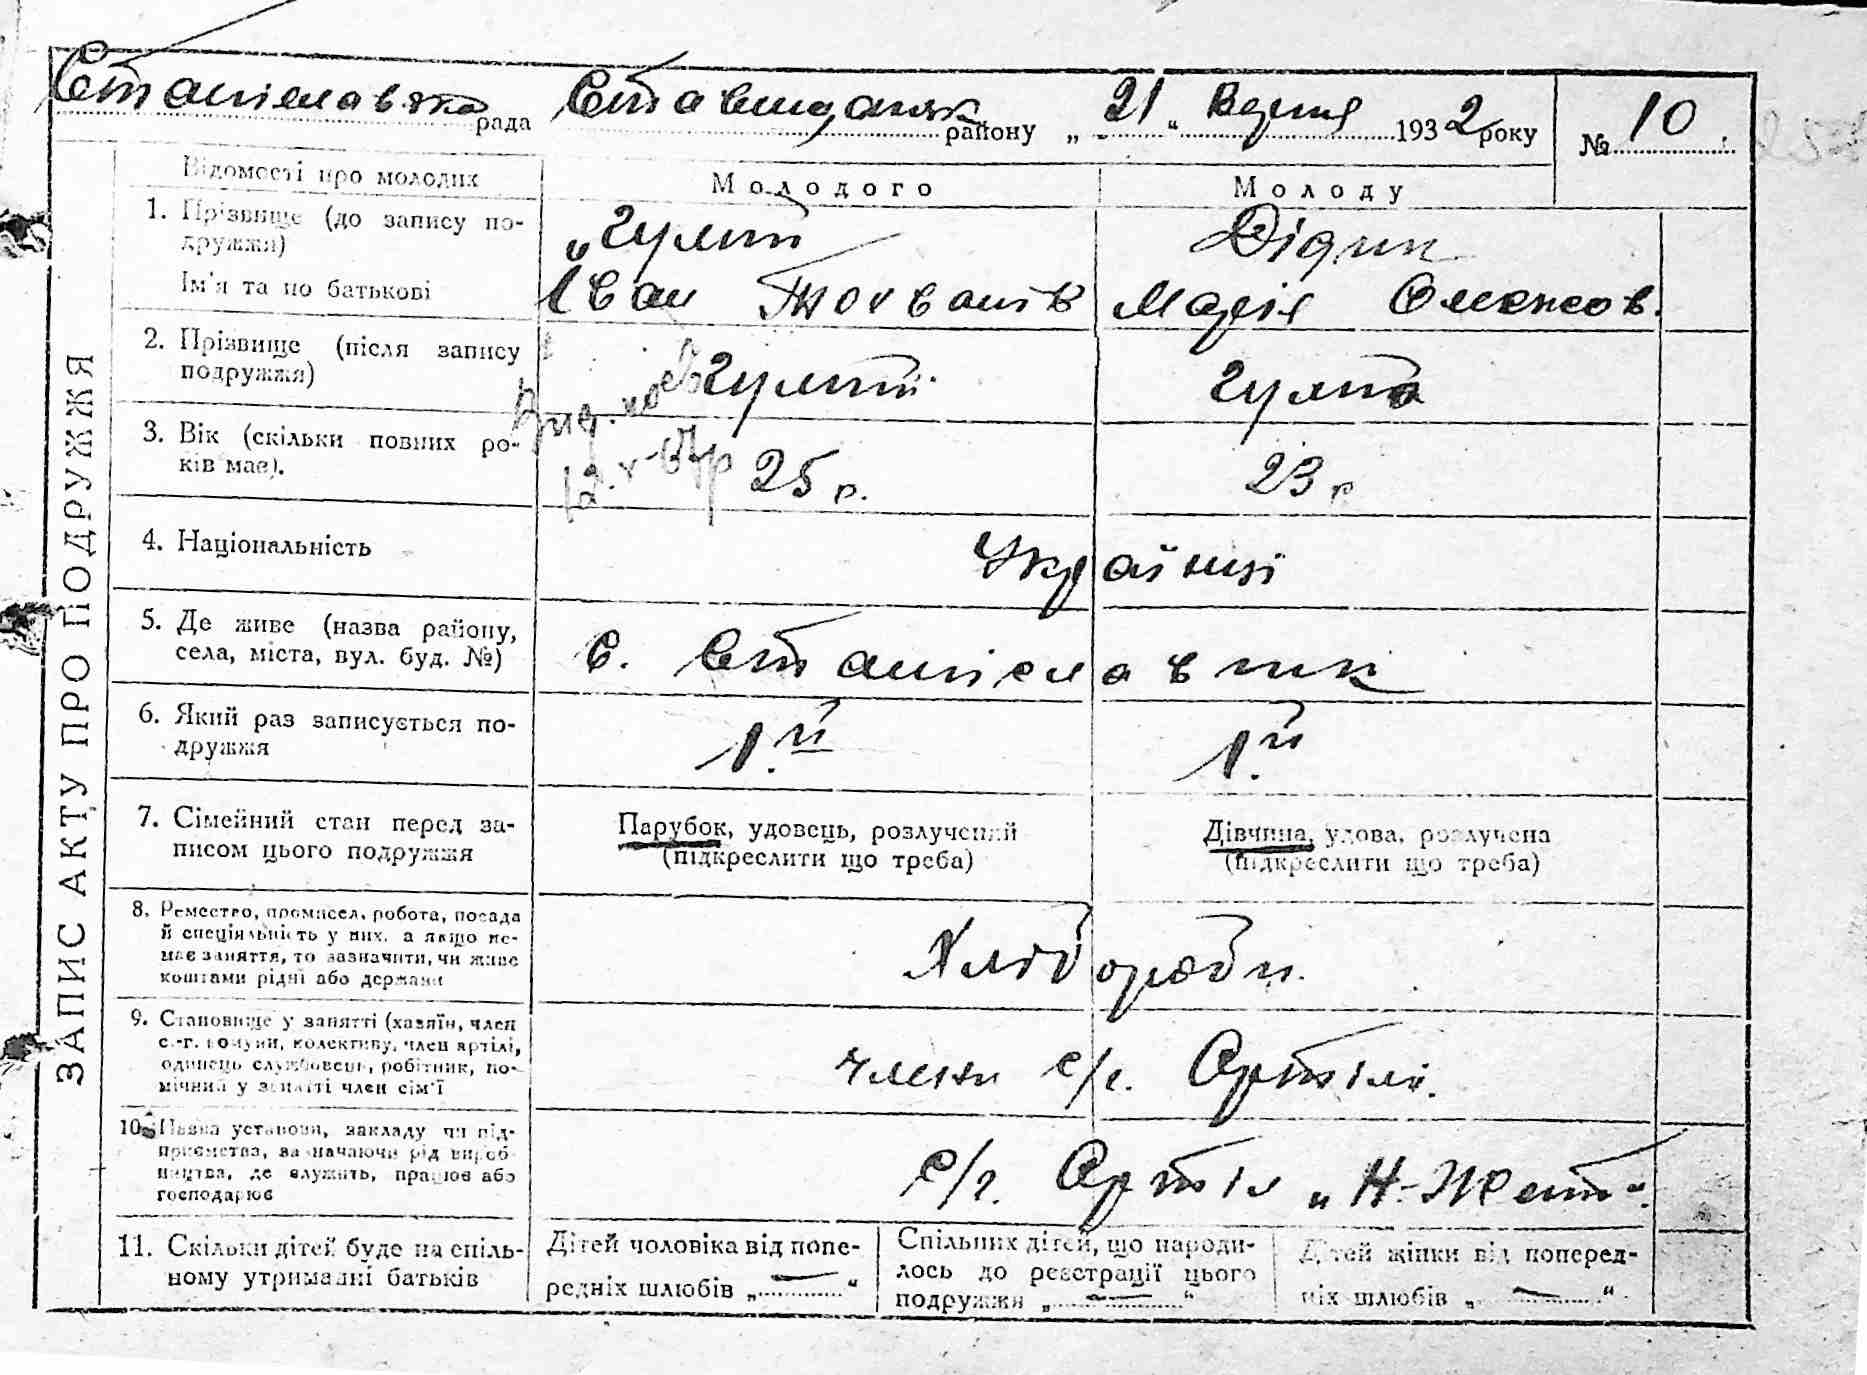 Станіславська рада Ставищанськ району „ 21 “ 1932 року № 10
ЗАПИС АКТУ ПРО ПОДРУЖЖЯ
Відомості про молодих
Молодого Молоду
1. Прізвище (до запису по-
дружжя)
Гульт Дідик
Ім'я та по батькові
Іван Марія Олексов.
2. Прізвище (після запису
подружжя)
Гульт Гульт
3. Вік (скільки повних ро-
ків має).
25 р. 23 р
4. Національність
Українці
5. Де живе (назва району,
села, міста, вул. буд. №)
С. Станіславчик
6. Який раз записується по-
дружжя
1.й 1.й
7. Сімейний стан перед за-
писом цього подружжя
Парубок, удовець, розлучений
(підкреслити що треба)
Дівчина, удова, розлучена
(підкреслити що треба)
8. Ремество, промисел, робота, посада
й спеціяльність у них, а якщо не-
має заняття, то зазначити, чи живе
коштами рідні або держави
Хлібороби.
9. Становище у занятті (хазяїн, член
с.-г. комуни, колективу, член артілі,
одинець службовець, робітник, по-
мічний у занятті член сім'ї
члени с/г. Артілі.
10. Назва установи, закладу чи під-
приємства, зазначаючи рід вироб-
ництва, де служить, працює або
господарює
с/г. Артіл „Н-Жетт“.
11. Скільки дітей буде на спіль-
ному утриманні батьків
Дітей чоловіка від попе-
редніх шлюбів „ — “
Спільних дітей, що народи-
лось до реєстрації цього
подружжя „ — “
Дітей жінки від поперед-
ніх шлюбів „ — “